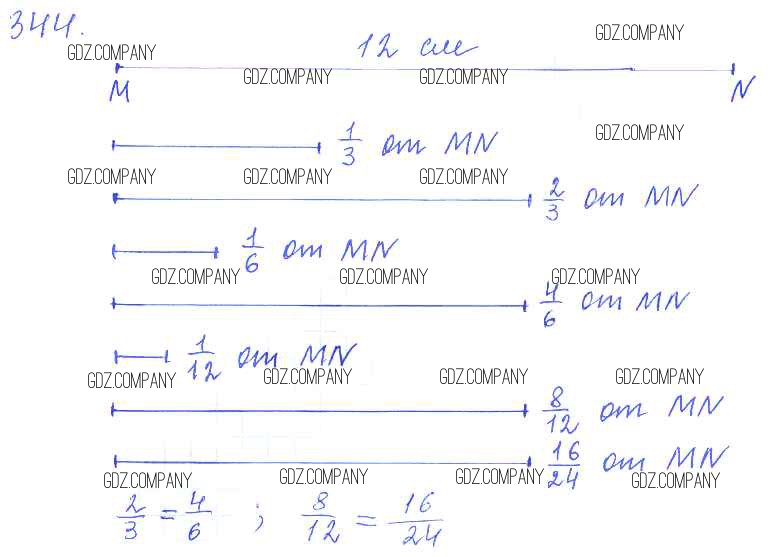 344.
GDZ.COMPANY 12 см GDZ.COMPANY
GDZ.COMPANY GDZ.COMPANY
M N
1/3 от MN GDZ.COMPANY
GDZ.COMPANY GDZ.COMPANY GDZ.COMPANY
2/3 от MN
1/6 от MN
GDZ.COMPANY GDZ.COMPANY GDZ.COMPANY
4/6 от MN
1/12 от MN
GDZ.COMPANY GDZ.COMPANY GDZ.COMPANY GDZ.COMPANY
8/12 от MN
16/24 от MN
GDZ.COMPANY GDZ.COMPANY GDZ.COMPANY GDZ.COMPANY
2/3 = 4/6 ; 8/12 = 16/24